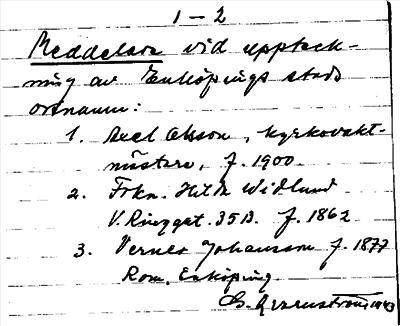 1-2
Meddelare vid uppteck-
ning av Enköpings stads
ortnamn:
1. Axel Olsson, kyrkovakt-
mästare, f. 1900.
2. Frkn. Hilda Widlund
V. Ringgat. 35B. f. 1862
3. Verner Johansson f. 1877
Rom. Enköping